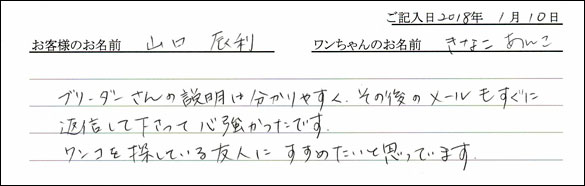 ご記入日2018年 1月10日
お客様のお名前 山口 辰利 ワンちゃんのお名前 きなこ あんこ
ブリーダーさんの説明は分かりやすく、その後のメールもすぐに
返信して下さって心強かったです.
ワンコを探している友人にすすめたいと思っています.